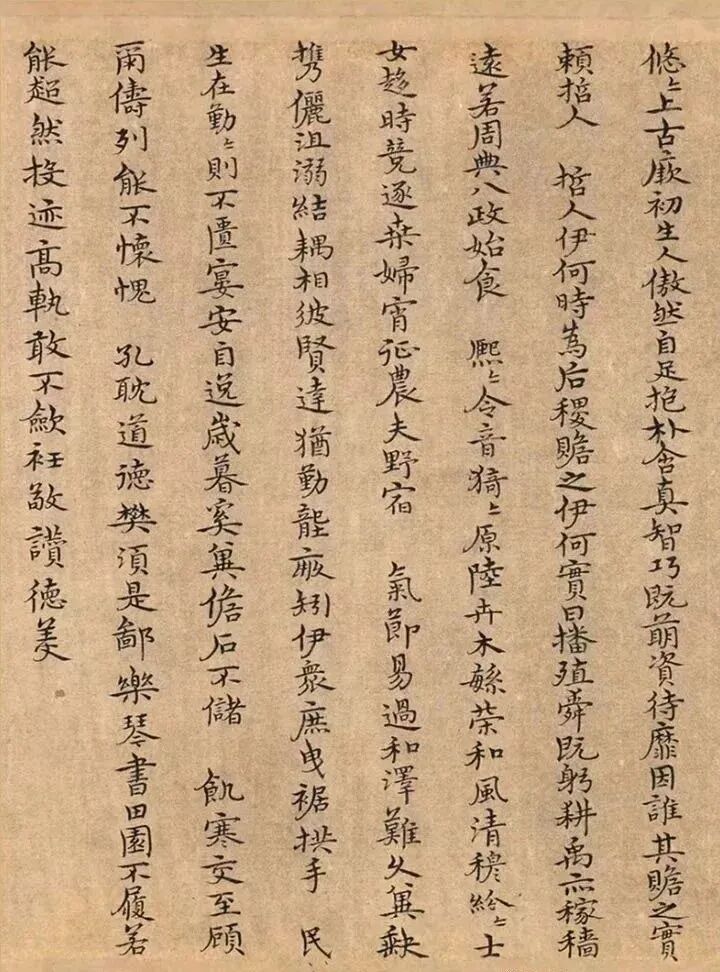 悠〻上古厥初生人傲然自足抱朴含真智巧既萌資待靡因誰其贍之實
頼哲人 哲人伊何時為后稷贍之伊何實曰播殖舜既躬耕禹亦稼穡
遠若周典八政始食 熙〻令音猗〻原陸卉木繁榮和風清穆紛〻士
女趍時競逐桒婦宵征農夫野宿 氣節易過和澤難久兾缺
携儷沮溺結耦相彼賢達猶勤壠畝矧伊衆庶曳裾拱手 民
生在勤〻則不匱宴安自逸歳暮奚兾儋石不儲 飢寒交至顧
爾儔列能不懷愧 孔耽道德樊須是鄙樂琴書田園不履若
能超然投迹高軌敢不歛衽敬讃德美